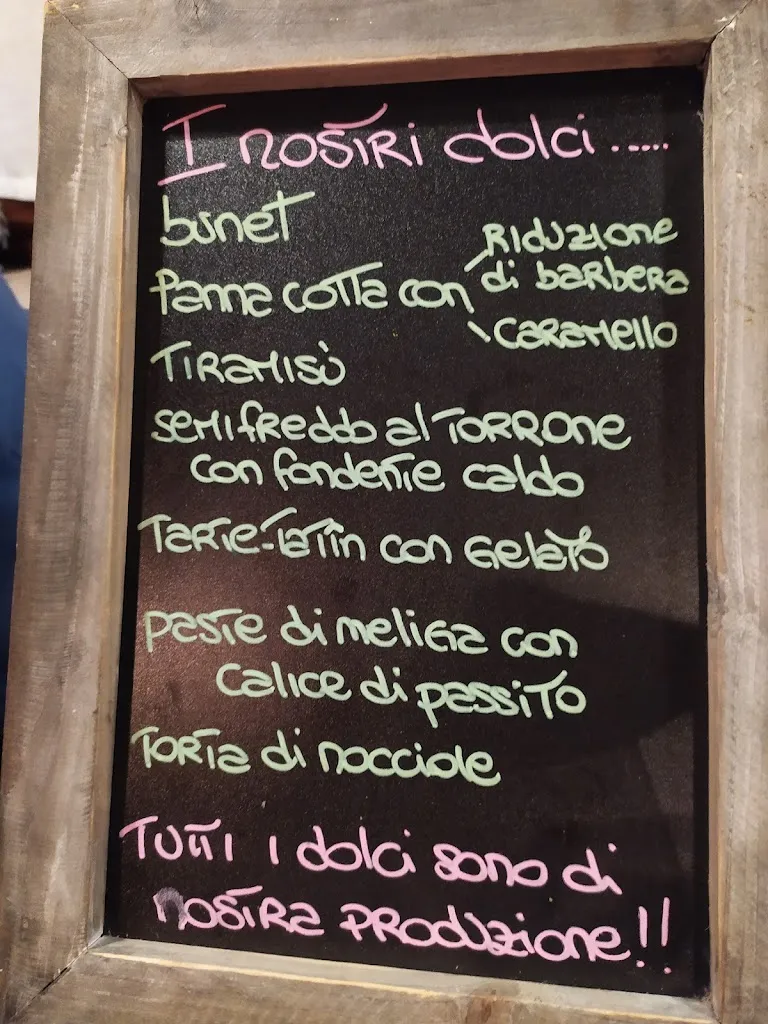 I nostri dolci .....
bunet
Panna cotta con
Riduzione
di barbera
caramello
Tiramisù
semifreddo al torrone
con fondente caldo
Tarte-tatîn con gelato
paste di meliga con
calice di passito
Torta di nocciole
Tutti i dolci sono di
nostra produzione!!